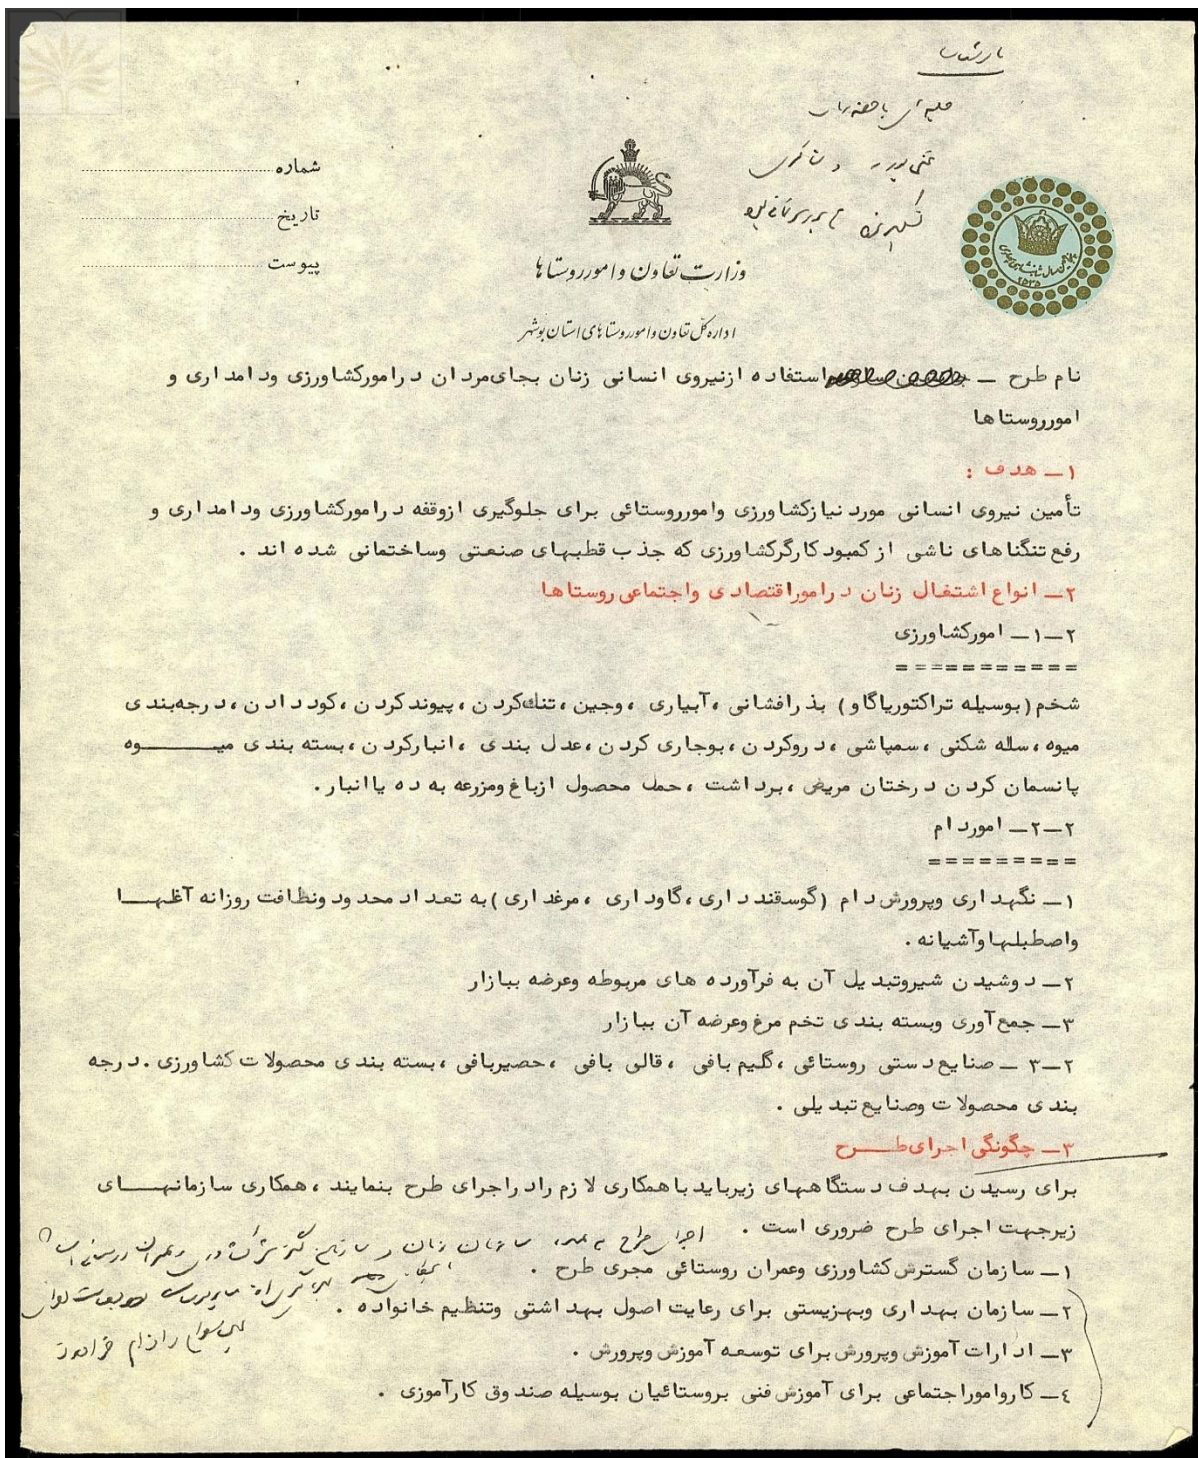 شماره
تاریخ
پیوست
وزارت تعاون و امور روستاها
اداره کل تعاون و امور روستاهای استان بوشهر
نام طرح ـ استفاده ازنیروی انسانی زنان بجای‌مردان درامورکشاورزی ودامداری و
امورروستاها
۱ـ هدف :
تأمین نیروی انسانی مورد نیازکشاورزی وامورروستائی برای جلوگیری ازوقفه درامورکشاورزی ودامداری و
رفع تنگناهای ناشی از کمبود کارگرکشاورزی که جذب قطبهای صنعتی وساختمانی شده اند .
۲ـ انواع اشتغال زنان درامور اقتصادی واجتماعی روستاها
۲ـ۱ـ امورکشاورزی
===========
شخم (بوسیله تراکتوریاگاو) بذرافشانی ، آبیاری ، وجین ، تنك‌کردن ، پیوند کردن ، کود دادن ، درجه‌بندی
میوه ، سله شکنی ، سمپاشی ، دروکردن ، بوجاری کردن ، عدل بندی ، انبارکردن ، بسته بندی میـــــوه
پانسمان کردن درختان مریض ، برداشت ، حمل محصول ازباغ ومزرعه به ده یاانبار .
۲ـ۲ـ اموردام
=========
۱ـ نگهداری وپرورش دام (گوسفندداری ، گاوداری ، مرغداری) به تعداد محدود ونظافت روزانه آغلهـــا
واصطبلهاوآشیانه .
۲ـ دوشیدن شیروتبدیل آن به فرآورده های مربوطه وعرضه ببازار
۳ـ جمع آوری وبسته بندی تخم مرغ وعرضه آن ببازار
۲ـ۳ ـ صنایع دستی روستائی ، گلیم بافی ، قالی بافی ، حصیربافی ، بسته بندی محصولات کشاورزی . درجه
بندی محصولات وصنایع تبدیلی .
۳ـ چگونگی اجرای طـــرح
برای رسیدن بهدف دستگاههای زیرباید باهمکاری لازم رادراجرای طرح بنمایند ، همکاری سازمانهـــای
زیرجهت اجرای طرح ضروری است . اجرای طرح سازمان زنان و سازمان گسترش
۱ـ سازمان گسترش کشاورزی وعمران روستائی مجری طرح .
۲ـ سازمان بهداری وبهزیستی برای رعایت اصول بهداشتی وتنظیم خانواده .
۳ـ ادارات آموزش وپرورش برای توسعه آموزش وپرورش .
٤ـ کاروامور اجتماعی برای آموزش فنی بروستائیان بوسیله صندوق کارآموزی .